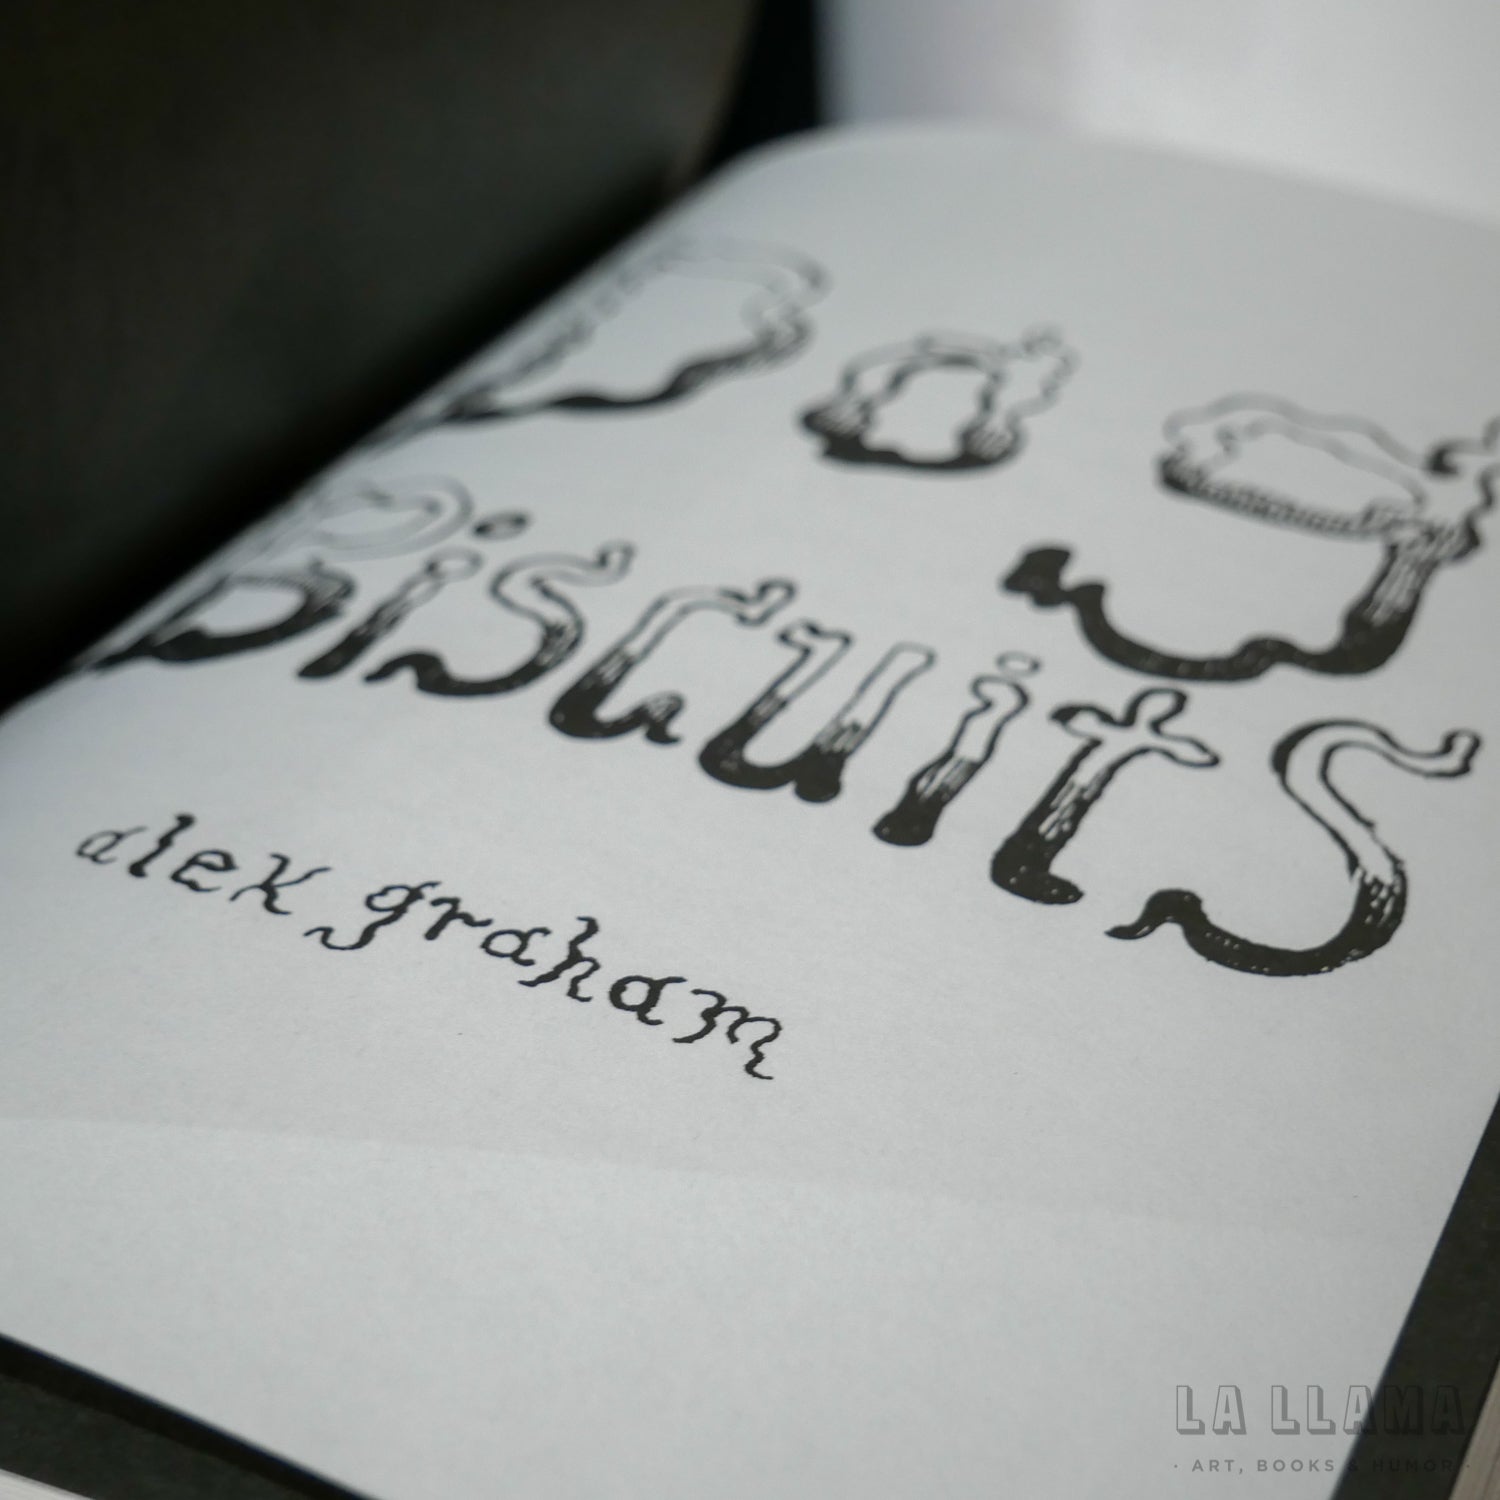 Dog
Biscuits
alek graham
LA LLAMA
· ART, BOOKS & HUMOR ·